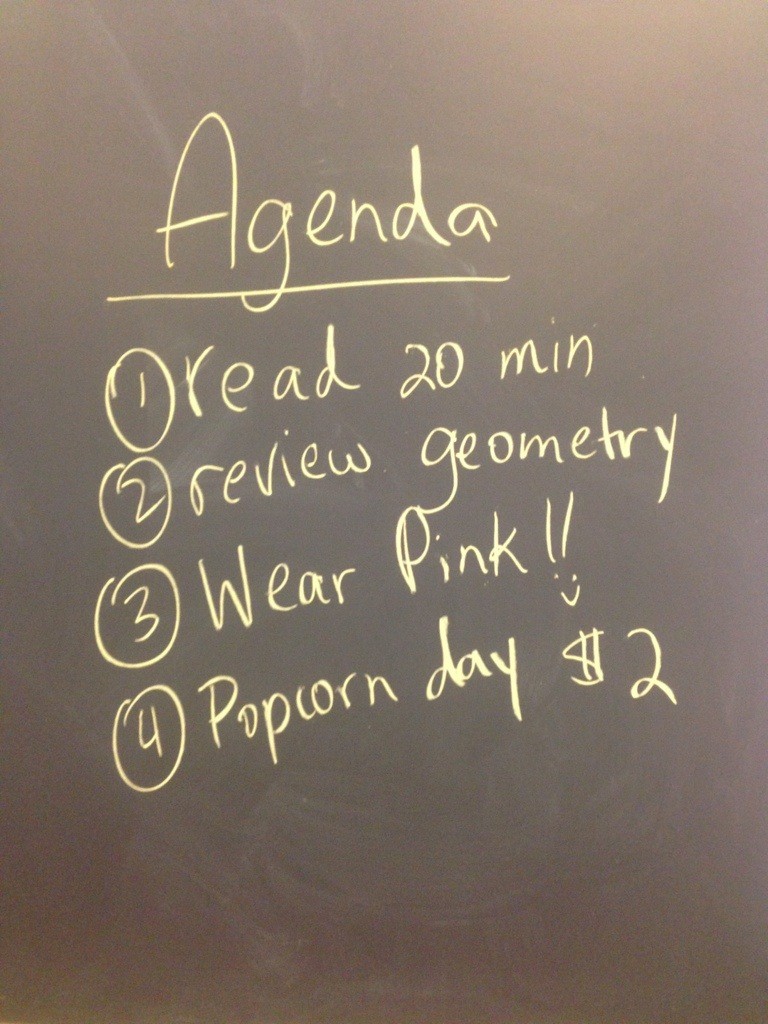 Agenda
① read 20 min
② review geometry
③ Wear Pink!!
④ Popcorn day $2